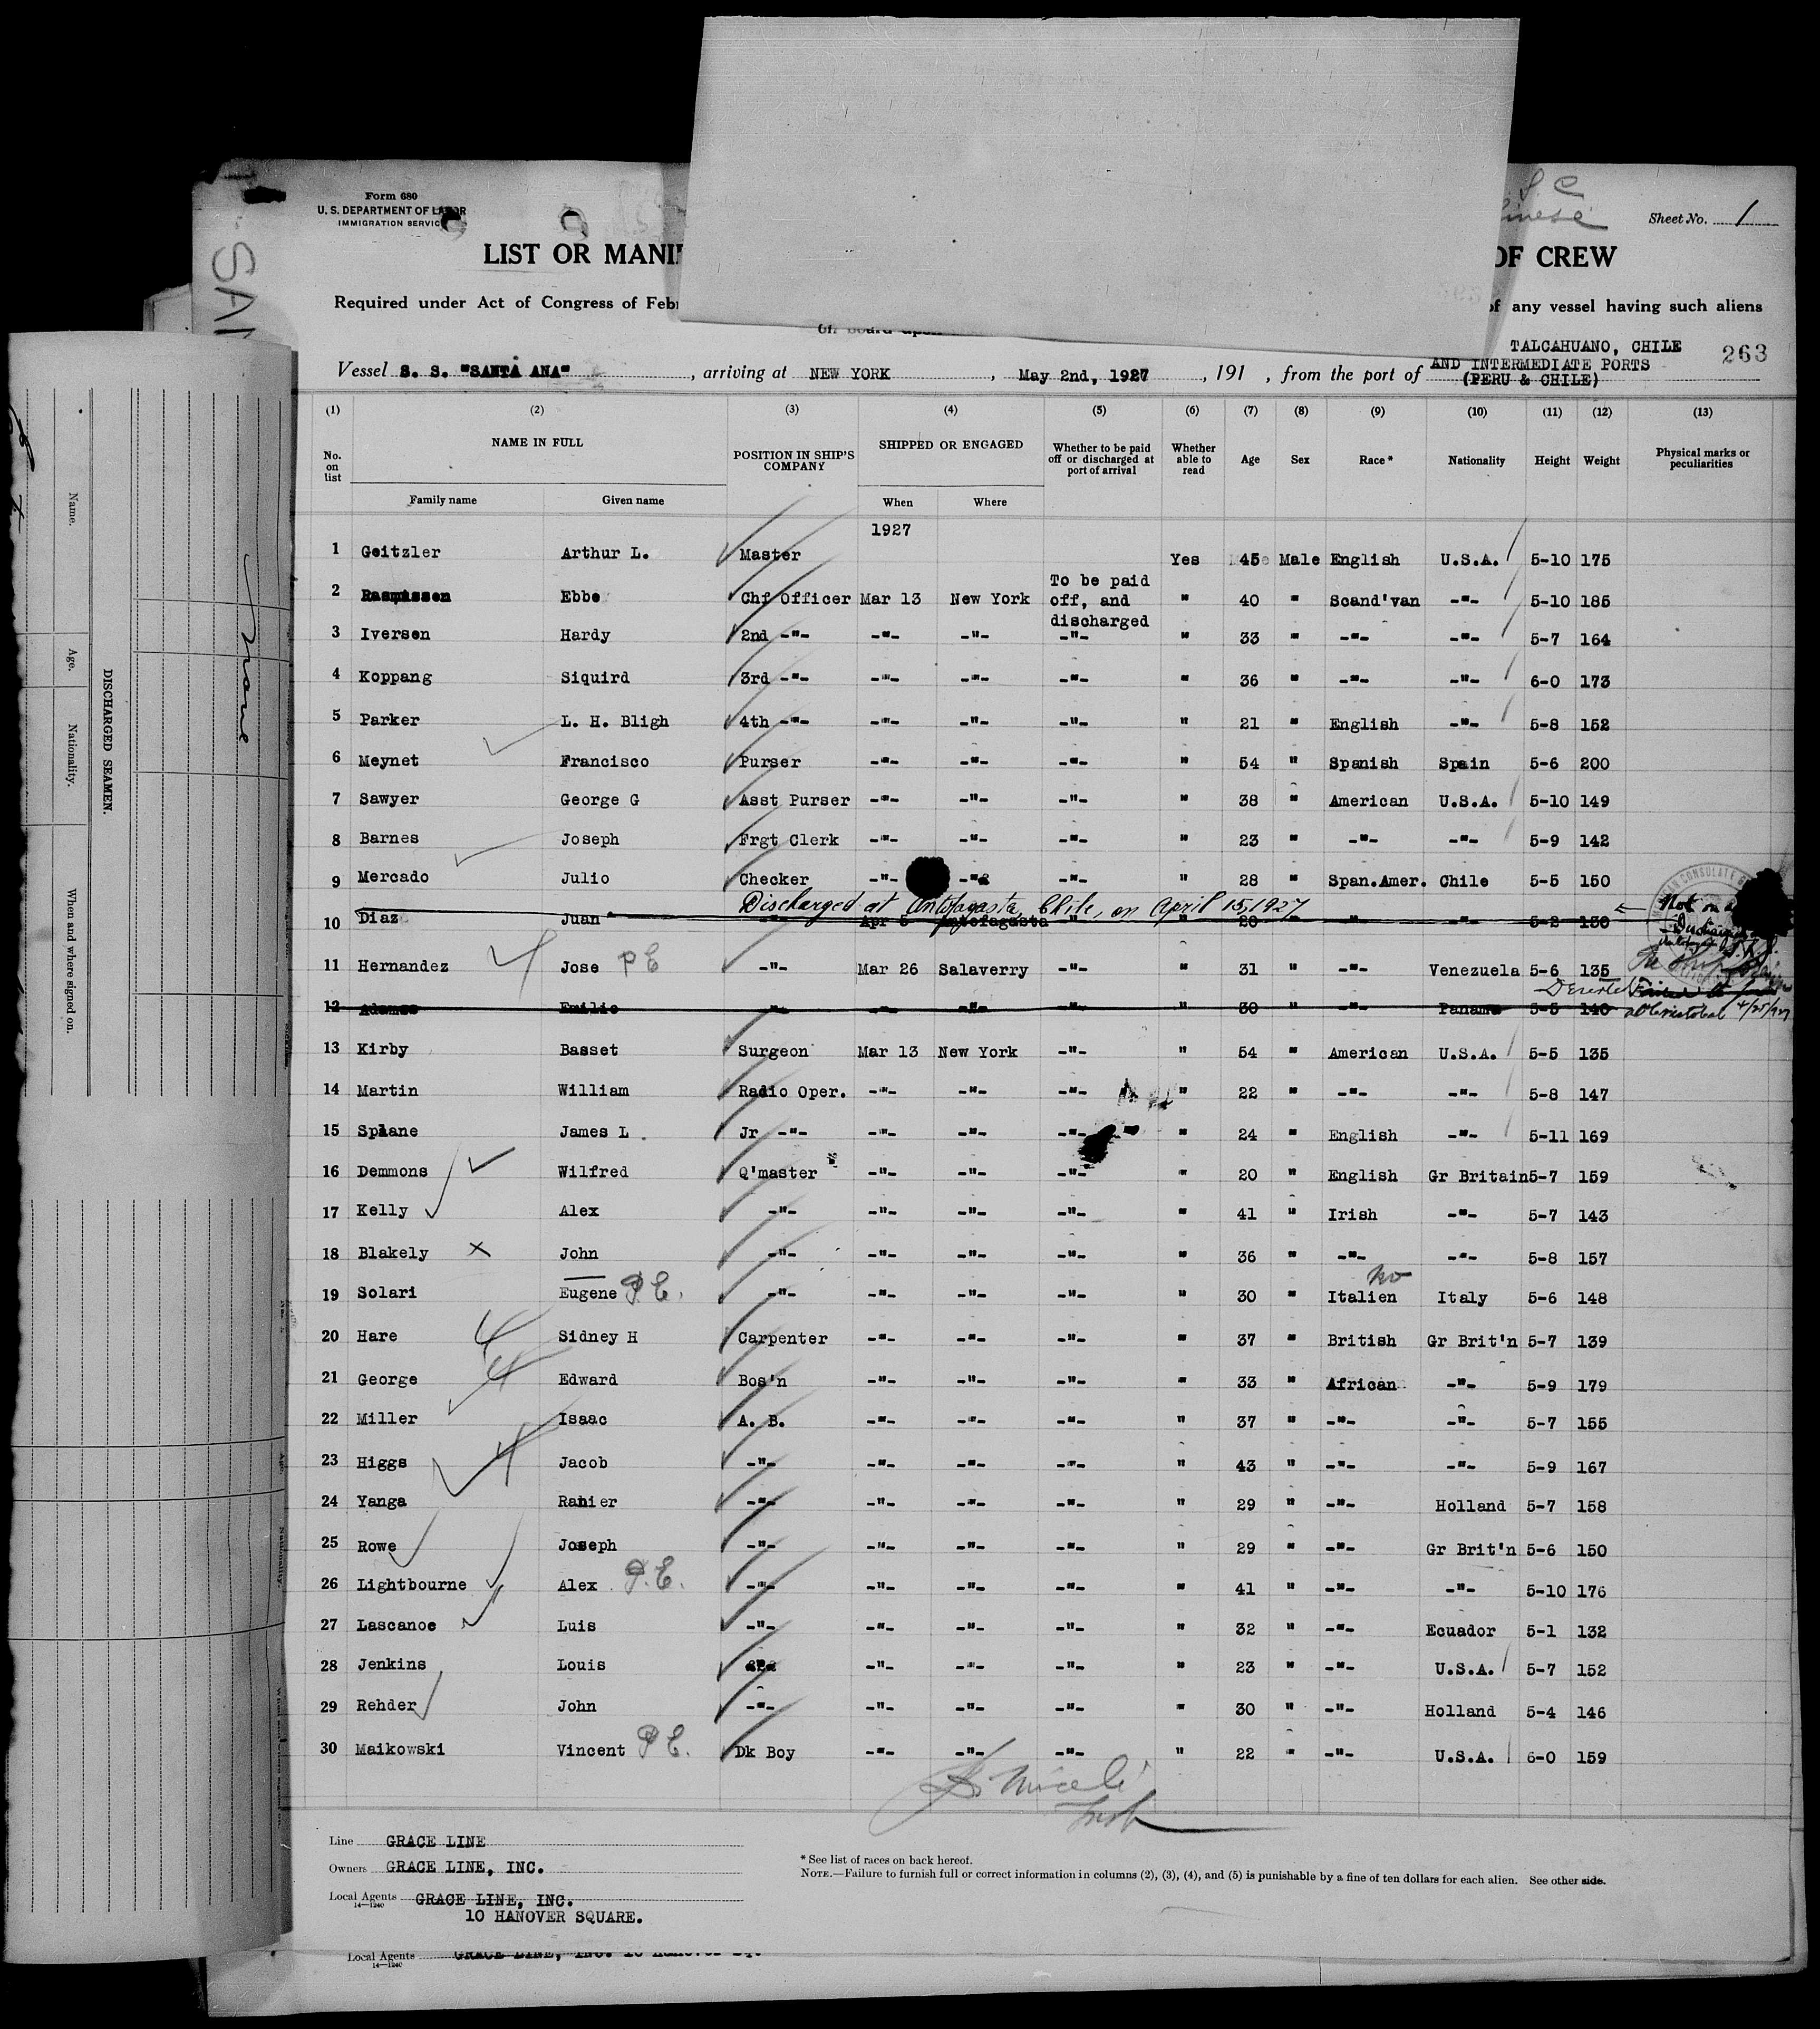 Form 680
U. S. DEPARTMENT OF LABOR
IMMIGRATION SERVICE
Sheet No. 1
SAN
LIST OR MANI
OF CREW
Required under Act of Congress of Feb
of any vessel having such aliens
on board upon
TALCAHUANO, CHILE
263
Vessel S. S. "SANTA ANA" , arriving at NEW YORK , May 2nd, 1927 , 191 , from the port of AND INTERMEDIATE PORTS
(PERU & CHILE)
(1) (2) (3) (4) (5) (6) (7) (8) (9) (10) (11) (12) (13)
No. on list NAME IN FULL POSITION IN SHIP'S COMPANY SHIPPED OR ENGAGED Whether to be paid off or discharged at port of arrival Whether able to read Age Sex Race* Nationality Height Weight Physical marks or peculiarities
Family name Given name When Where
1927
1 Geitzler Arthur L. Master Yes 45 Male English U.S.A. 5-10 175
2 Rasmussen Ebbe Chf Officer Mar 13 New York To be paid off, and discharged " 40 " Scand'van -"- 5-10 185
3 Iversen Hardy 2nd -"- -"- -"- -"- " 33 " -"- -"- 5-7 164
4 Koppang Siquird 3rd -"- -"- -"- -"- " 36 " -"- -"- 6-0 173
5 Parker L. H. Bligh 4th -"- -"- -"- -"- " 21 " English -"- 5-8 152
6 Meynet Francisco Purser -"- -"- -"- " 54 " Spanish Spain 5-6 200
7 Sawyer George G Asst Purser -"- -"- -"- " 38 " American U.S.A. 5-10 149
8 Barnes Joseph Frgt Clerk -"- -"- -"- " 23 " -"- -"- 5-9 142
9 Mercado Julio Checker -"- -"- -"- " 28 " Span.Amer. Chile 5-5 150
Discharged at Antofagasta, Chile, on April 15, 1927
10 Diaz Juan -"- Apr 5 Antofagasta -"- " 20 " -"- -"- 5-2 130 Not on
11 Hernandez Jose P E -"- Mar 26 Salaverry -"- " 31 " -"- Venezuela 5-6 135
Deserted
12 Adames Emilio -"- -"- -"- -"- " 30 " -"- Panama 5-5 140 at Cristobal 4/25/27
13 Kirby Basset Surgeon Mar 13 New York -"- " 54 " American U.S.A. 5-5 135
14 Martin William Radio Oper. -"- -"- -"- " 22 " -"- -"- 5-8 147
15 Splane James L. Jr -"- -"- -"- -"- " 24 " English -"- 5-11 169
16 Demmons Wilfred Q'master -"- -"- -"- " 20 " English Gr Britain 5-7 159
17 Kelly Alex -"- -"- -"- -"- " 41 " Irish -"- 5-7 143
18 Blakely x John -"- -"- -"- -"- " 36 " -"- -"- 5-8 157
no
19 Solari Eugene P.E. -"- -"- -"- -"- " 30 " Italien Italy 5-6 148
20 Hare Sidney H Carpenter -"- -"- -"- " 37 " British Gr Brit'n 5-7 139
21 George Edward Bos'n -"- -"- -"- " 33 " African -"- 5-9 179
22 Miller Isaac A. B. -"- -"- -"- " 37 " -"- -"- 5-7 155
23 Higgs Jacob -"- -"- -"- -"- " 43 " -"- -"- 5-9 167
24 Yanga Ranier -"- -"- -"- -"- " 29 " -"- Holland 5-7 158
25 Rowe Joseph -"- -"- -"- -"- " 29 " -"- Gr Brit'n 5-6 150
26 Lightbourne Alex P.E. -"- -"- -"- -"- " 41 " -"- -"- 5-10 176
27 Lascanoe Luis -"- -"- -"- -"- " 32 " -"- Ecuador 5-1 132
28 Jenkins Louis -"- -"- -"- -"- " 23 " -"- U.S.A. 5-7 152
29 Rehder John -"- -"- -"- -"- " 30 " -"- Holland 5-4 146
30 Maikowski Vincent P E. Dk Boy -"- -"- -"- " 22 " -"- U.S.A. 6-0 159
Line GRACE LINE
Owners GRACE LINE, INC.
Local Agents GRACE LINE, INC.
14—1240
10 HANOVER SQUARE.
* See list of races on back hereof.
NOTE.—Failure to furnish full or correct information in columns (2), (3), (4), and (5) is punishable by a fine of ten dollars for each alien. See other side.
Local Agents GRACE LINE, INC. 10 Hanover Sq.
14—1240
DISCHARGED SEAMEN.
Name. Age. Nationality. When and where signed on.
None